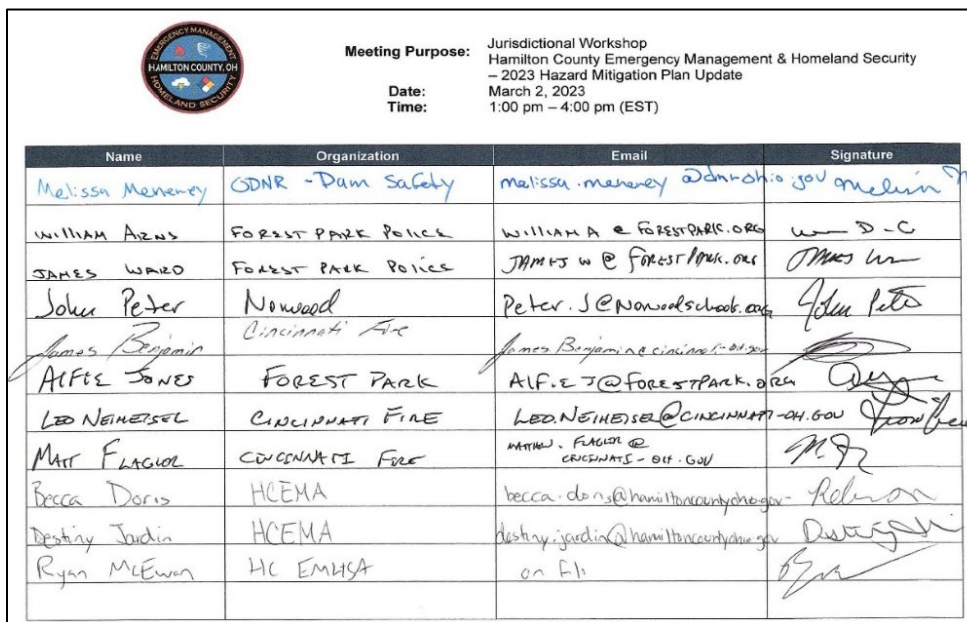 EMERGENCY MANAGEMENT
HAMILTON COUNTY, OH
HOMELAND SECURITY
Meeting Purpose: Jurisdictional Workshop
Hamilton County Emergency Management & Homeland Security
– 2023 Hazard Mitigation Plan Update
Date: March 2, 2023
Time: 1:00 pm – 4:00 pm (EST)
Name Organization Email Signature
Melissa Menerey ODNR - Dam Safety melissa.menerey@dnr.ohio.gov
William Arns Forest Park Police WilliamA@forestpark.org
James Ward Forest Park Police JamesW@forestpark.org
John Peter Norwood Peter.J@Norwoodschools.org John Peter
James Benjamin Cincinnati Fire James.Benjamin@cincinnati-oh.gov
Alfie Jones Forest Park Alfie J@forestpark.org
Leo Neiheisel Cincinnati Fire Leo.Neiheisel@cincinnati-oh.gov
Matt Flagler Cincinnati Fire Matthew.Flagler@
cincinnati-oh.gov
Becca Doris HCEMA becca.doris@hamiltoncountyohio.gov
Destiny Jardin HCEMA destiny.jardin@hamiltoncountyohio.gov
Ryan McEwan HC EMHSA on